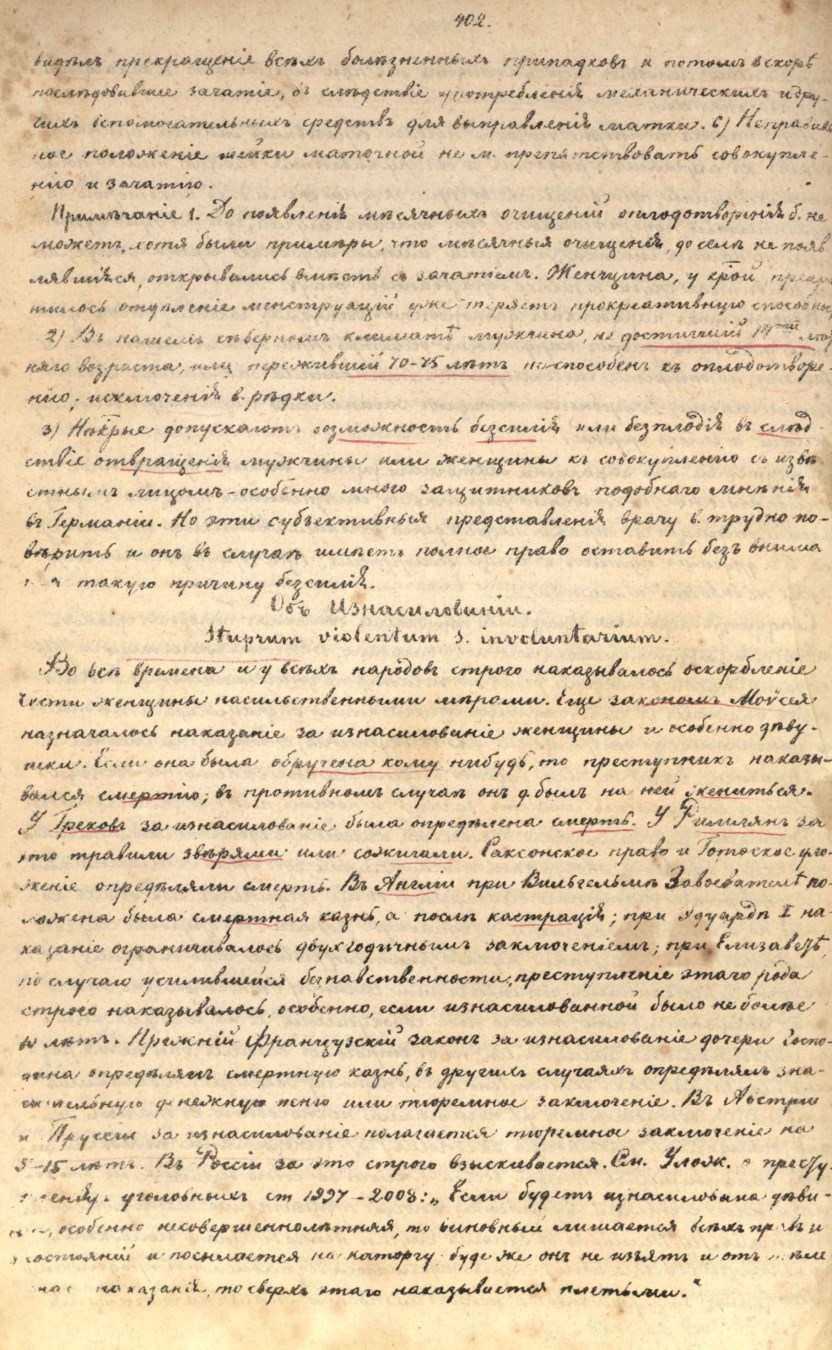 402.
видѣлъ прекращеніе всѣхъ болѣзненныхъ припадковъ и потомъ вскорѣ
послѣдовавшее зачатіе, въ слѣдствіе употребленія механическихъ и дру-
гихъ вспомогательныхъ средствъ для выправленія матки. с) Неправиль
ное положеніе шейки маточной не м. препятствовать совокупле-
нію и зачатію.
Примѣчаніе 1. До появленія мѣсячныхъ очищеній оплодотворенія б. не
можетъ, хотя были примѣры, что мѣсячныя очищенія, до селѣ не появ
лявшіяся, открывались вмѣстѣ съ зачатіемъ. Женщина, у крой прекра
тилось отдѣленіе менструацій уже теряетъ прокреативную способнос
2) Въ нашемъ сѣверномъ климатѣ мужчина, не достигшій 14ти лѣт
няго возраста, или пережившій 70-75 лѣтъ неспособенъ къ оплодотворе-
нію; исключенія в. рѣдки.
3) Нѣкрые допускаютъ возможность безсилія или безплодія въ слѣд
ствіе отвращенія мужчины или женщины къ совокупленію съ извѣ
стнымъ лицомъ - особенно много защитниковъ подобнаго мнѣнія
въ Германіи. Но эти субъективныя представленія врачу в. трудно по-
вѣрить и онъ въ случаѣ имѣетъ полное право оставить безъ внима
такую причину безсилія.
Объ Изнасилованіи.
Stuprum violentum s. involuntarium.
Во всѣ времена и у всѣхъ народовъ строго наказывалось оскорбленіе
чести женщины насильственными мѣрами. Еще закономъ Моѵсея
назначалось наказаніе за изнасилованіе женщины и особенно дѣву-
шки. Если она была обручена кому нибудь, то преступникъ наказы-
вался смертію; въ противномъ случаѣ онъ д. былъ на ней жениться.
У Грековъ за изнасилованіе была опредѣлена смерть. У Римлянъ за
это травили звѣрями или сожигали. Саксонское право и Готское уло-
женіе опредѣляли смерть. Въ Англіи при Вильгельмѣ Завоевателѣ по-
ложена была смертная казнь, а послѣ кастрація; при Эдуардѣ I на-
казаніе ограничивалось двухгодичнымъ заключеніемъ; при Елизаветѣ,
по случаю усилившейся безнравственности, преступленіе этаго рода
строго наказывалось, особенно, если изнасилованной было не болѣе
10 лѣтъ. Прежній Французскій законъ за изнасилованіе дочери Госпо-
дина опредѣлялъ смертную казнь, въ другихъ случаяхъ опредѣлялъ зна-
чительную денежную пеню или тюремное заключеніе. Въ Австріи
и Пруссіи за изнасилованіе полагается тюремное заключеніе на
5-15 лѣтъ. Въ Россіи за это строго взыскивается. См. Улож. о престу
уголовныхъ ст 1997-2003: „Если будетъ изнасилована дѣви-
особенно несовершеннолѣтняя, то виновный лишается всѣхъ правъ и
состояній и посылается на каторгу буде же онъ не изъятъ и отъ тѣле
наказанія, то сверхъ этаго наказывается плетьми."